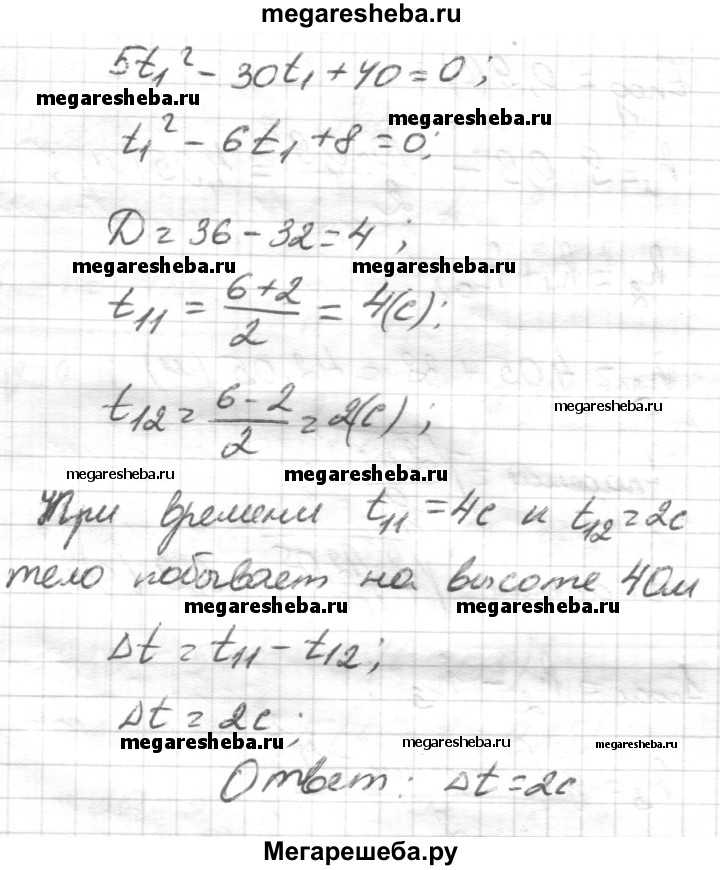 megaresheba.ru
5t₁² - 30t₁ + 40 = 0;
megaresheba.ru
megaresheba.ru
t₁² - 6t₁ + 8 = 0;
D = 36 - 32 = 4;
megaresheba.ru megaresheba.ru
t₁₁ = (6+2)/2 = 4(с);
t₁₂ = (6-2)/2 = 2(с);
megaresheba.ru
megaresheba.ru megaresheba.ru
При времени t₁₁ = 4с и t₁₂ = 2с
тело побывает на высоте 40м
megaresheba.ru megaresheba.ru
Δt = t₁₁ - t₁₂;
Δt = 2с;
megaresheba.ru megaresheba.ru megaresheba.ru
Ответ: Δt = 2с
Мегарешеба.ру